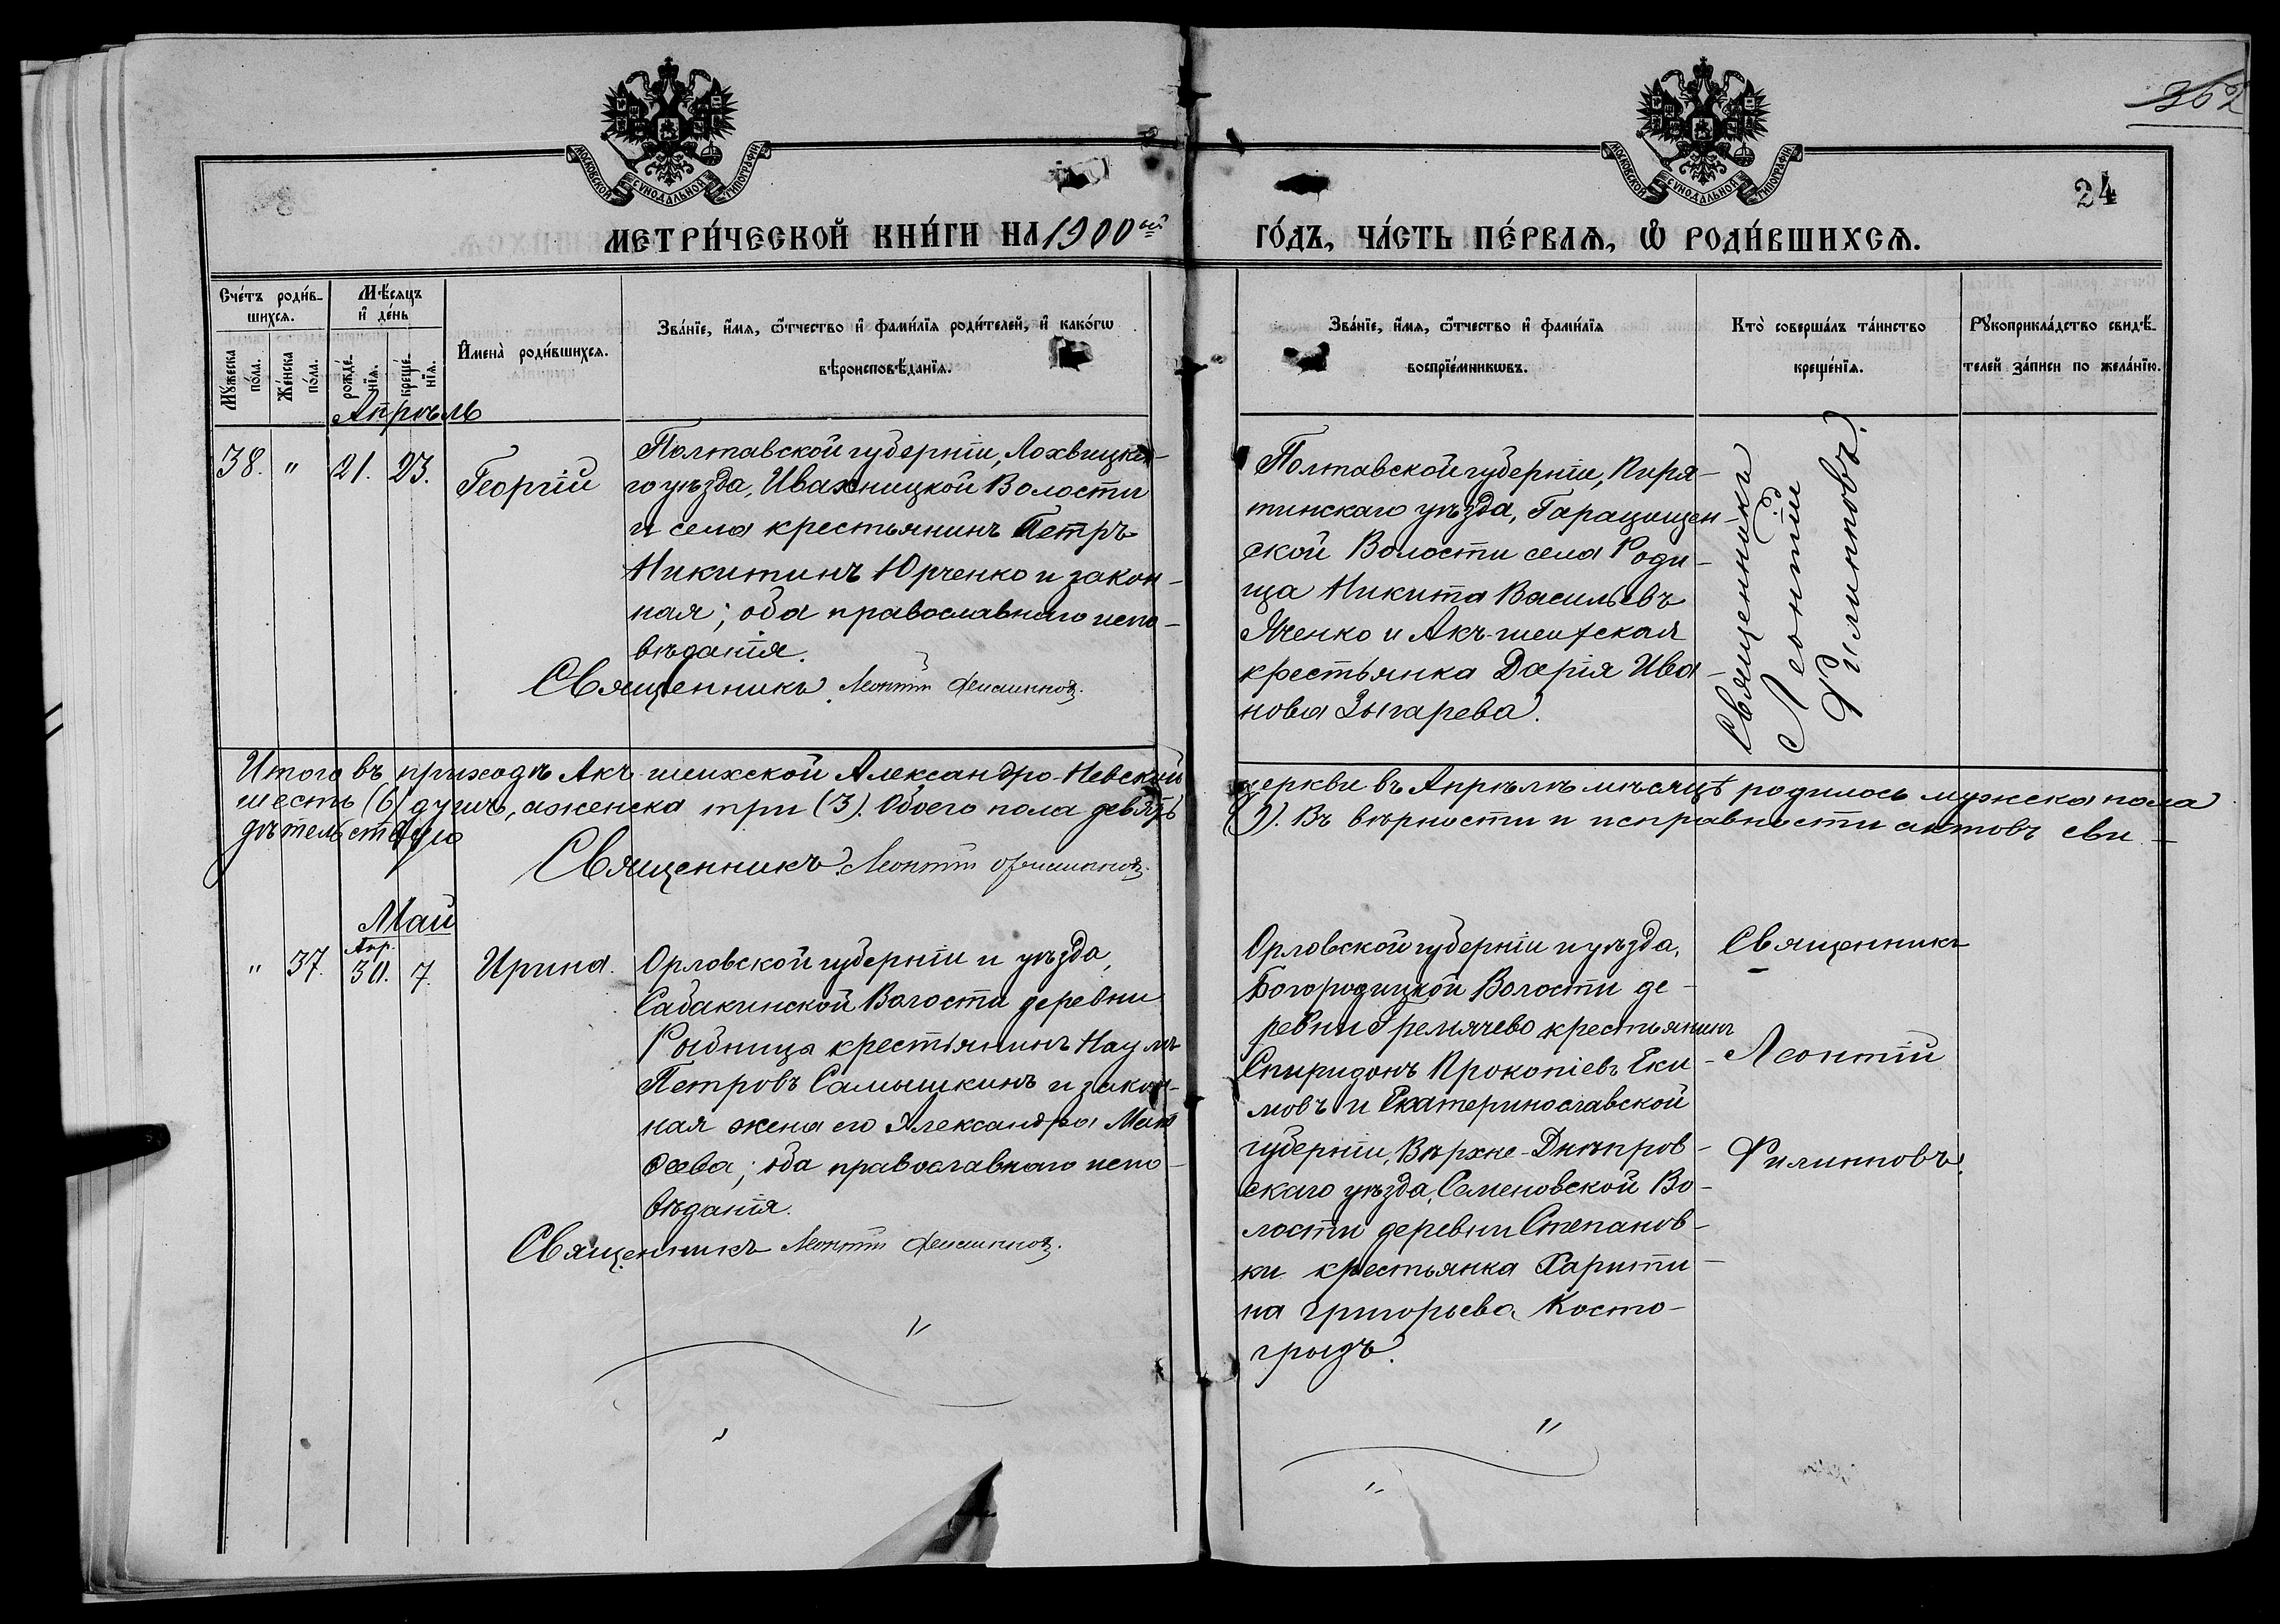 362
24
МОСКОВСКОЙ СѴНОДАЛЬНОЙ ТИПОГРАФІИ
МОСКОВСКОЙ СѴНОДАЛЬНОЙ ТИПОГРАФІИ
МЕТРИ́ЧЕСКОЙ КНИ́ГИ НА 1900ый ГО́ДЪ, ЧА́СТЬ ПЕ́РВАѦ, Ѡ҆ РОДИ́ВШИХСѦ.
Сче́тъ роди́в-
шихсѧ.
Мꙋ́жеска по́ла.
Же́нска по́ла.
Мѣ́сѧцъ
и҆ де́нь
рожде́-
нїѧ.
креще́-
нїѧ.
И҆мена̀ роди́вшихсѧ.
Зва́нїе, и҆́мѧ, ѻ҆́тчество и҆ фами́лїѧ роди́телей, и҆ како́гѡ
вѣроисповѣ́данїѧ.
Зва́нїе, и҆́мѧ, ѻ҆́тчество и҆ фами́лїѧ
воспрїе́мникѡвъ.
Кто̀ соверша́лъ та́инство
креще́нїѧ.
Рꙋкоприкла́дство свидѣ́-
телей за́писи по жела́нїю.
Апрѣль
38. " 21. 23. Георгій
Полтавской губерніи, Лохвицка-
го уѣзда, Ивахницкой Волости
и села крестьянинъ Петръ
Никитинъ Юрченко и закон-
ная; оба православнаго испо-
вѣданія.
Священникъ Леонтій Филипповъ.
Полтавской губерніи, Пиря-
тинскаго уѣзда,
ской Волости села Роди-
ща Никита Васильевъ
Яченко и Акъ-шеихская
крестьянка Дарія Ива-
нова Зыгарева.
Священникъ
Леонтій
Филипповъ.
Итого въ приходѣ Акъ-шеихской Александро-Невской церкви въ Апрѣлѣ мѣсяцѣ родилось мужеска пола
шесть (6) душъ, а женска три (3). Обоего пола девять (9). Въ вѣрности и исправности актовъ сви-
дѣтельствую
Священникъ Леонтій Филипповъ.
Май
Апр.
" 37. 30. 7. Ирина.
Орловской губерніи и уѣзда,
Сабакинской Волости деревни
Рыбница крестьянинъ Наумъ
Петровъ Самышкинъ и закон-
ная жена его Александра Мат
ѳеева; оба православнаго испо-
вѣданія.
Священникъ Леонтій Филипповъ.
Орловской губерніи и уѣзда,
Богородицкой Волости де-
ревни Гремячево крестьянинъ
Спиридонъ Прокопіевъ Еки-
мовъ и Екатеринославской
губерніи, Верхне-Днѣпров-
скаго уѣзда, Семеновской Во-
лости деревни Степанов-
ки крестьянка Харити-
на Григорьева Косто-
грызъ.
Священникъ
Леонтій
Филипповъ.